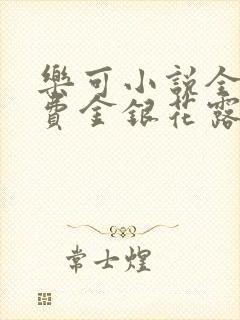 樂可小說全
費金銀花露
常士煌